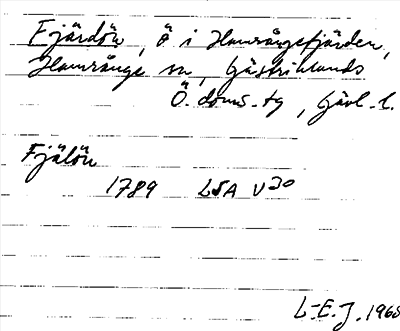 Fjärdön, ö i Hamrångefjärden,
Hamrånge sn, Gästriklands
Ö. doms.-tg, Gävl. l.
Fjälön
1789 LSA V 30
L-E. J. 1968